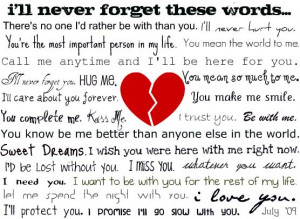 i'll never forget these words...
There's no one I'd rather be with than you. I'll never hurt you.
You're the most important person in my life. You mean the world to me.
Call me anytime and I'll be here for you.
I'll never forget you. HUG ME. You mean so much to me.
I'll care about you forever. You make me smile.
You complete me. Kiss Me. I trust you. Be with me.
You know be me better than anyone else in the world.
Sweet Dreams. I wish you were here with me right now.
I'd be lost without you. I miss you. whatever you want.
I need you. I want to be with you for the rest of my life.
let me spend the night with you. i love you.
I'll protect you. I promise I'll go slow with you. July 07.